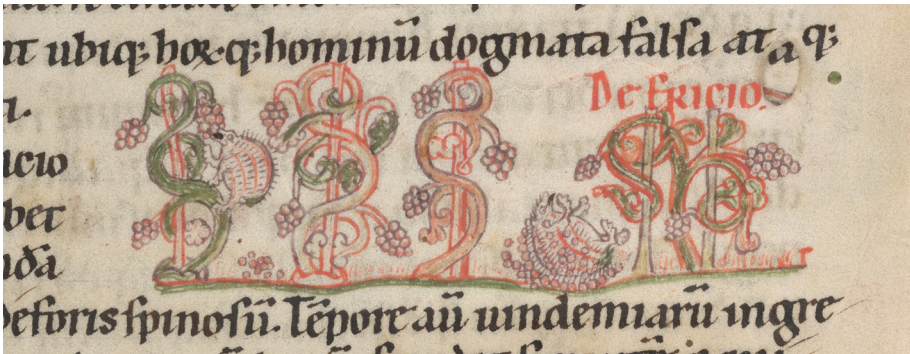 ut ubiq; hoꝝ·q; hominū dogmata falsa at a q;
De Ericio.
a.
icio
bet
nda
Deforis spinosū. Tēpore aū uindemiarū ingre